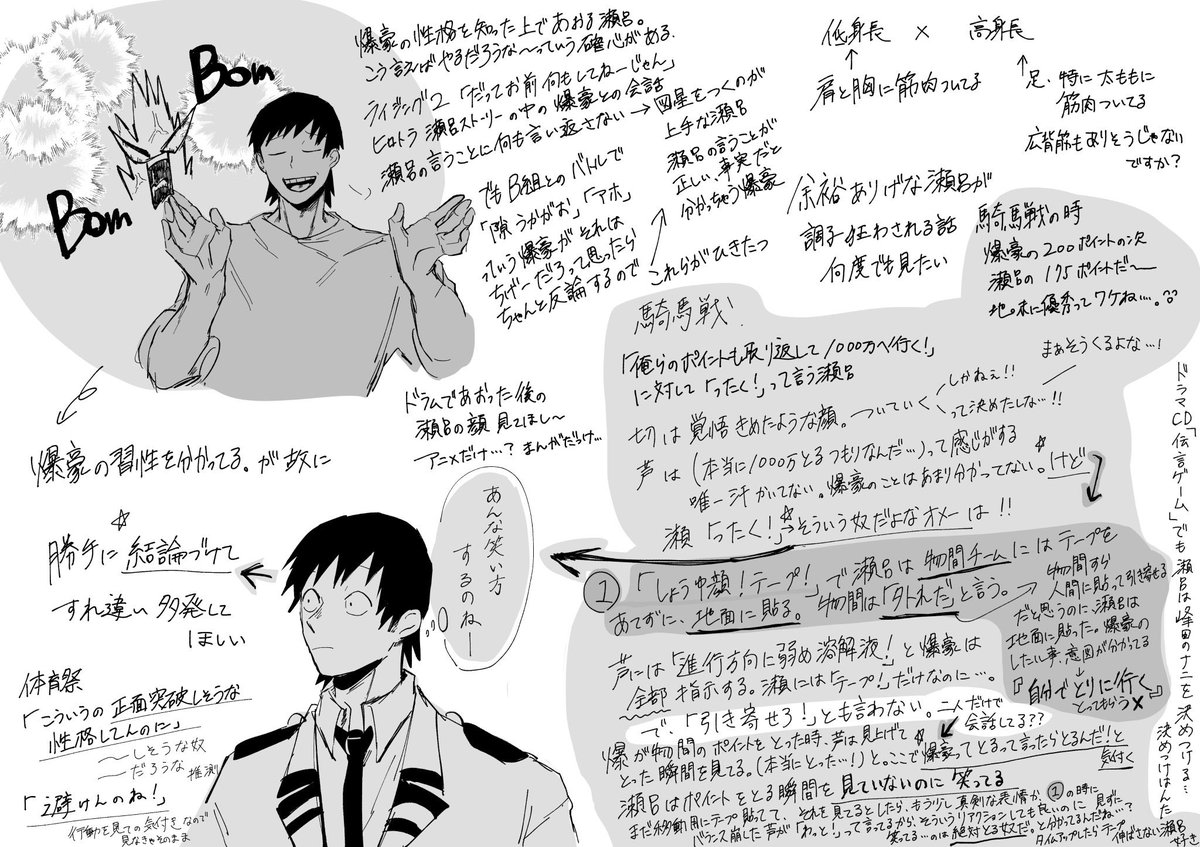 Bom
Bom
爆豪の性格を知った上であおる瀬呂。
こう言えばやるだろうな〜っていう確心がある.
ライジング2「だってお前何もしてねーじゃん」
ヒロトラ瀬呂ストーリーの中の爆豪との会話
瀬呂の言うことに何も言い返さない→図星をつくのが
上手な瀬呂
瀬呂の言うことが
正しい、事実だと
分かっちゃう爆豪
でもB組とのバトルで
「隙うかがお」「アホ」
っていう爆豪がそれは
ちげーだろって思ったら
ちゃんと反論するので
これらがひきたつ
低身長 × 高身長
肩と胸に筋肉ついてる
足、特に太ももに
筋肉ついてる
広背筋もありそうじゃない
ですか?
余裕ありげな瀬呂が
調子狂わされる話
何度でも見たい
騎馬戦の時
爆豪の200ポイントの次
瀬呂の175ポイントだ〜
地味に優秀ってワケね…。
まぁそうくるよな…!
ドラムであおった後の
瀬呂の顔見てほし〜
アニメだけ…?まんがだっけ…
騎馬戦!
「俺らのポイントも取り返して1000万へ行く!」
に対して「ったく!」って言う瀬呂
切は覚悟きめたような顔。ついていく
しかねぇ!!
って決めたしな…!!
芦は(本当に1000万とるつもりなんだ…)って感じがする
唯一汗かいてない。爆豪のことはあまり分かってない。けど
瀬「ったく!」→そういう奴だよなオメーは!!
爆豪の習性を分かってる。が故に
勝手に結論づけて
すれ違い多発して
ほしい
あんな笑い方
するのねー
①「しょうゆ顔!テープ!」で瀬呂は物間チームにはテープを
あてずに、地面に貼る。物間は「外れだ」と言う。
物間すら
人間に貼って引き寄せる
だと思うのに、瀬呂は
地面に貼った。爆豪の
したい事、意図が分かってる
『自分でとりに行く』
とってもらう×
芦には「進行方向に弱め溶解液!」と爆豪は
全部指示する。瀬には「テープ!」だけなのに…。
で、「引き寄せろ!」とも言わない。二人だけで
会話してる??
爆が物間のポイントをとった時、芦は見上げて
とった瞬間を見てる。(本当にとった…!)と。ここで爆豪ってとるって言ったらとるんだ!と
気付く
瀬呂はポイントをとる瞬間を見ていないのに笑ってる
まだ移動用にテープ貼ってて、それを見てるとしたら、もう少し真剣な表情か、①の時に
バランス崩した芦が「わっと!」って言ってるから、そういうリアクションしても良いのに見ずに、
笑ってる…のは絶対とる奴だ。と分かってるんだね…?
タイムアップしたらテープ
伸ばさない瀬呂
好き
体育祭
「こういうの正面突破しそうな
性格してんのに」
〜しそうな奴
〜だろうな 推測
「避けんのね!」
行動を見ての気付きなので
見なきゃそのまま
ドラマCD「伝言ゲーム」でも瀬呂は峰田のナニを決めつける…
決めつけはんた